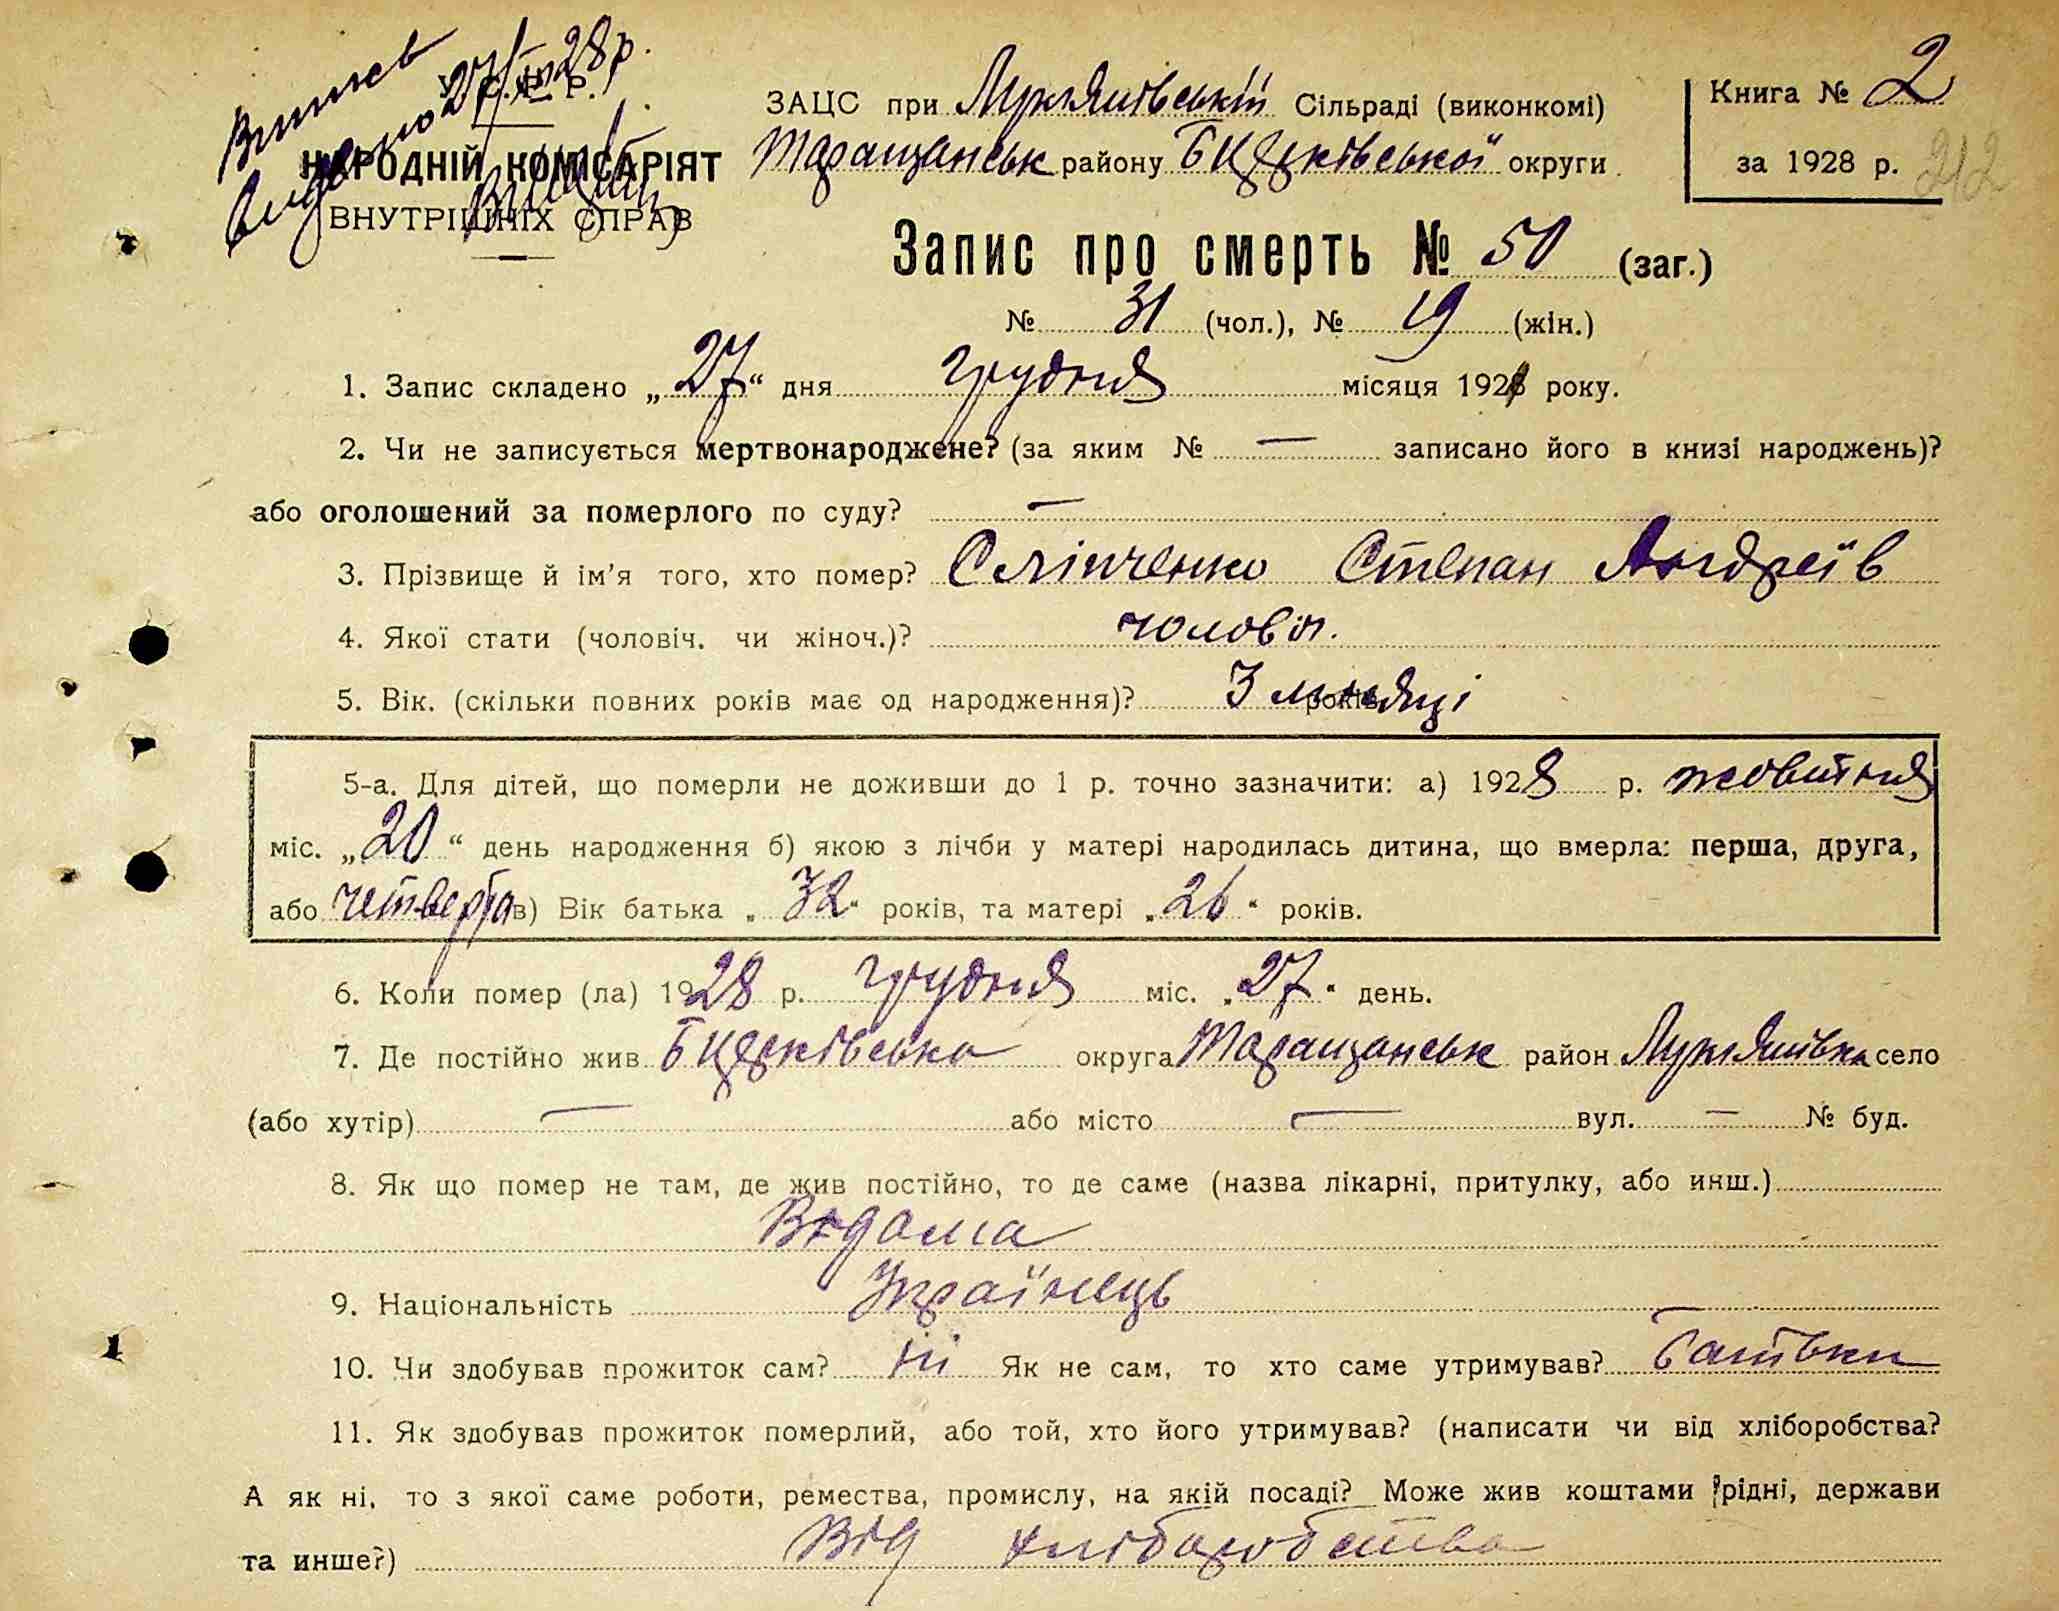 Витяг
видано 27/XII 28 р.
У. С. Р. Р.
НАРОДНІЙ КОМІСАРІЯТ
ВНУТРІШНІХ СПРАВ
ЗАЦС при Лукянівській Сільраді (виконкомі)
Таращанськ району Бцерківської округи
Книга № 2
за 1928 р. 212
Запис про смерть № 50 (заг.)
№ 31 (чол.), № 19 (жін.)
1. Запис складено „27“ дня грудня місяця 1928 року.
2. Чи не записується мертвонароджене? (за яким № — записано його в книзі народжень)?
або оголошений за померлого по суду? —
3. Прізвище й ім’я того, хто помер? Сліпченко Степан Андреїв
4. Якої стати (чоловіч. чи жіноч.)? чоловіч.
5. Вік. (скільки повних років має од народження)? 3 місяці років
5-а. Для дітей, що померли не доживши до 1 р. точно зазначити: а) 1928 р. жовтня
міс. „20“ день народження б) якою з лічби у матері народилась дитина, що вмерла: перша, друга,
або четверта в) Вік батька „32“ років, та матері „26“ років.
6. Коли помер (ла) 1928 р. грудня міс. „27“ день.
7. Де постійно жив Бцерківська округа Таращанськ район Лукянівка село
(або хутір) — або місто — вул. — № буд.
8. Як що помер не там, де жив постійно, то де саме (назва лікарні, притулку, або инш.)
Вдома
9. Національність Українець
10. Чи здобував прожиток сам? ні Як не сам, то хто саме утримував? Батьки
11. Як здобував прожиток померлий, або той, хто його утримував? (написати чи від хліборобства?
А як ні, то з якої саме роботи, ремества, промислу, на якій посаді? Може жив коштами рідні, держави
та инше?) Від хліборобства